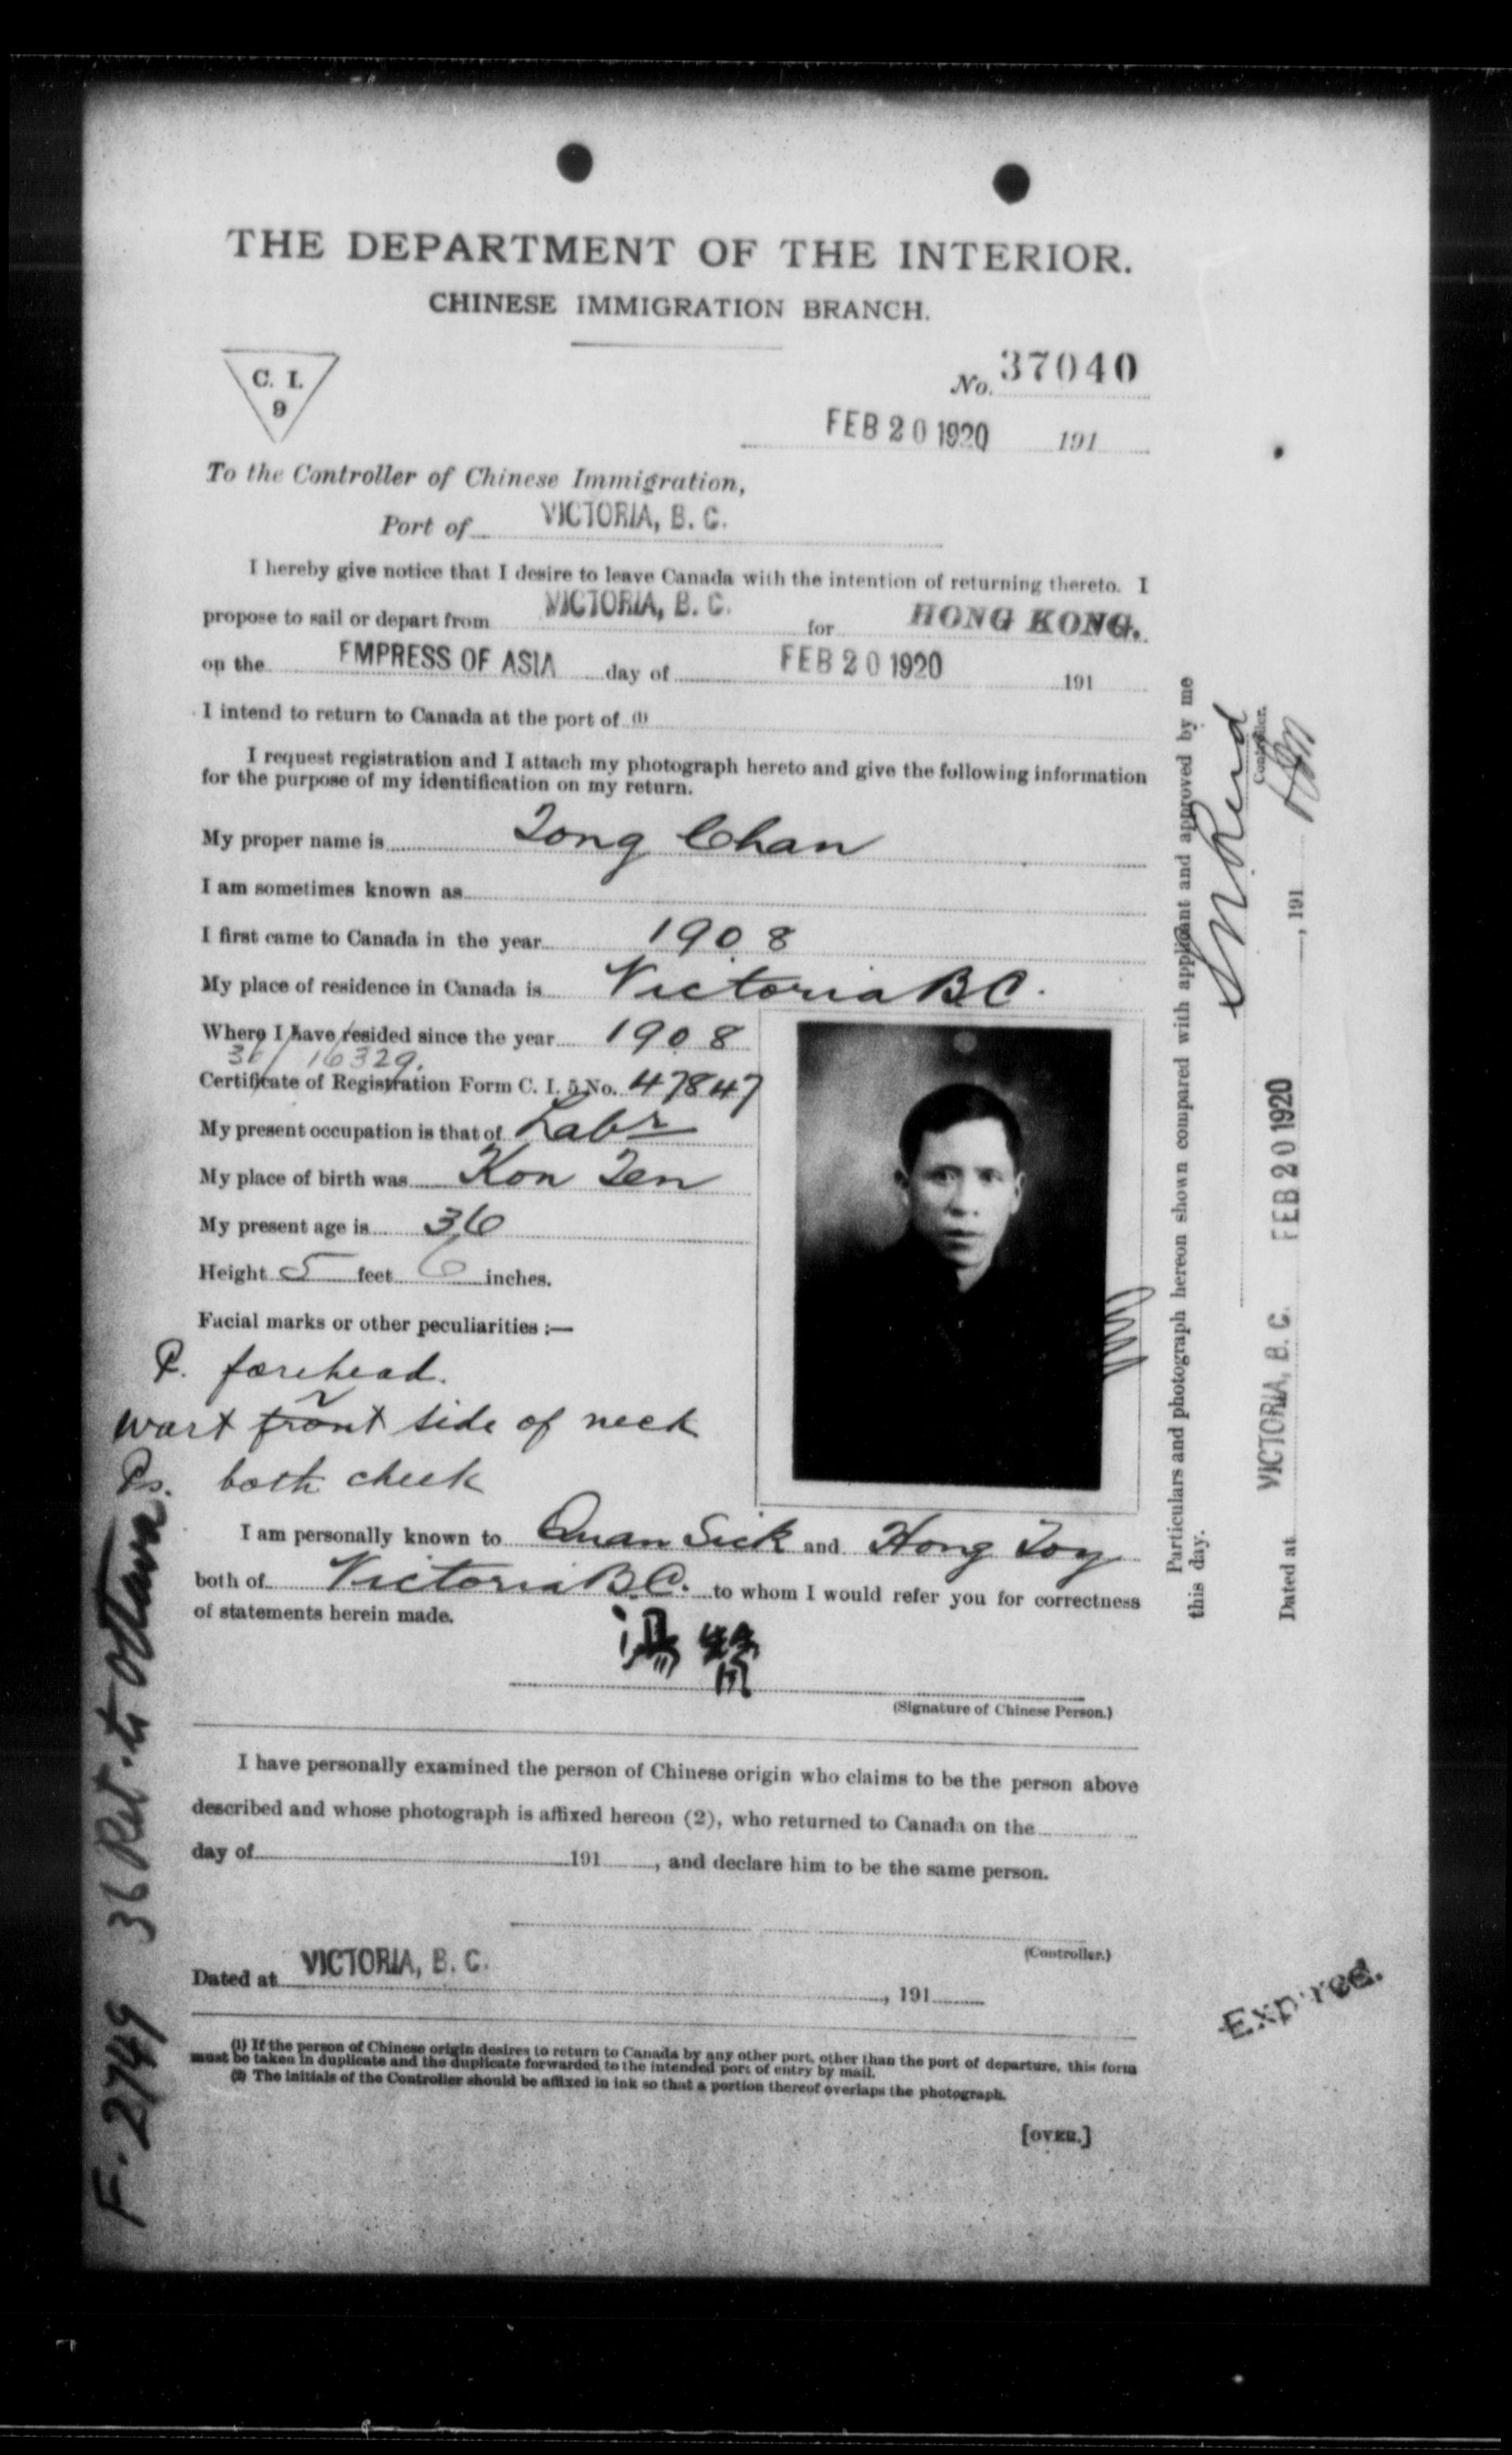 THE DEPARTMENT OF THE INTERIOR.
CHINESE IMMIGRATION BRANCH.
C. I.
9
No. 37040
FEB 20 1920 191
To the Controller of Chinese Immigration,
Port of VICTORIA, B. C.
I hereby give notice that I desire to leave Canada with the intention of returning thereto. I
propose to sail or depart from VICTORIA, B. C. for HONG KONG.
on the EMPRESS OF ASIA day of FEB 20 1920 191
I intend to return to Canada at the port of (1)
I request registration and I attach my photograph hereto and give the following information
for the purpose of my identification on my return.
My proper name is Tong Chan
I am sometimes known as
I first came to Canada in the year 1908
My place of residence in Canada is Victoria B C.
Where I have resided since the year 1908
36/16329.
Certificate of Registration Form C. I. 5 No. 47847
My present occupation is that of Labr
My place of birth was Kon Zen
My present age is 36
Height 5 feet 6 inches.
Facial marks or other peculiarities :—
P. forehead.
Wart front side of neck
Ps. both cheek
I am personally known to Quan Sick and Hong Toy
both of Victoria B.C. to whom I would refer you for correctness
of statements herein made.
(Signature of Chinese Person.)
I have personally examined the person of Chinese origin who claims to be the person above
described and whose photograph is affixed hereon (2), who returned to Canada on the
day of 191 , and declare him to be the same person.
(Controller.)
Dated at VICTORIA, B. C. , 191
(1) If the person of Chinese origin desires to return to Canada by any other port, other than the port of departure, this form
must be taken in duplicate and the duplicate forwarded to the intended port of entry by mail.
(2) The initials of the Controller should be affixed in ink so that a portion thereof overlaps the photograph.
[OVER.]
Particulars and photograph hereon shown compared with applicant and approved by me
this day.
Controller.
Dated at VICTORIA, B. C. FEB 20 1920 , 191
Expired.
F. 2749 36 Ret. to Ottawa